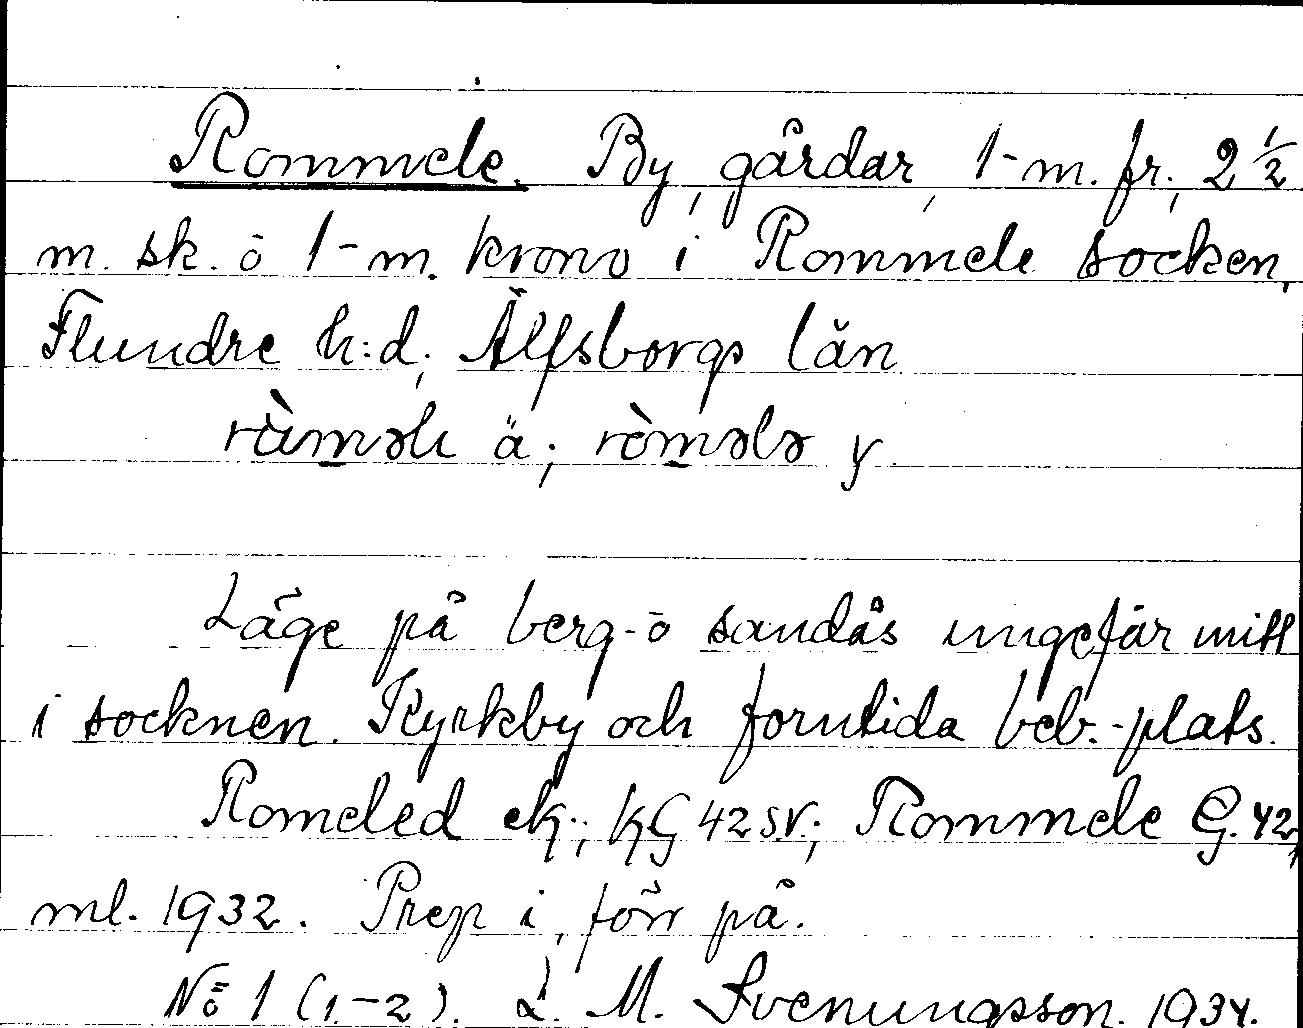 Rommele. By, gårdar, 1-m. fr., 2 1/2
m. sk. ö 1-m. krono i Rommele socken,
Flundre h:d; Älfsborgs län
ràməle ä; ròmələ y
Läge på berg- ö sandås ungefär mitt
i socknen. Kyrkby och forntida beb.-plats.
Romeled ek; KG 42 SV; Rommele G. 42,
ml. 1932. Prep i, förr på.
No 1 (1-2). L. M. Svenungsson. 1934.